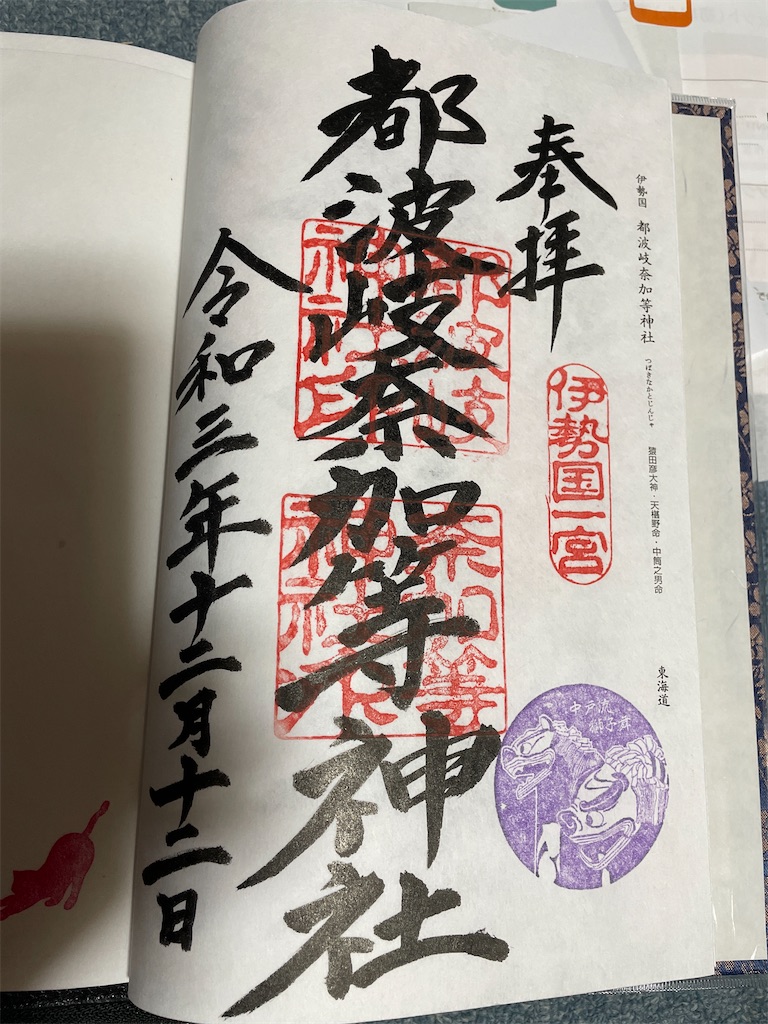 伊勢国 都波岐奈加等神社 つばきなかとじんじゃ 猿田彦大神・天椹野命・中筒之男命 東海道
奉拝
伊勢国一宮
中戸流
獅子舞
都波岐奈加等神社
都波岐
神社印
奈加等
神社
令和三年十二月十二日